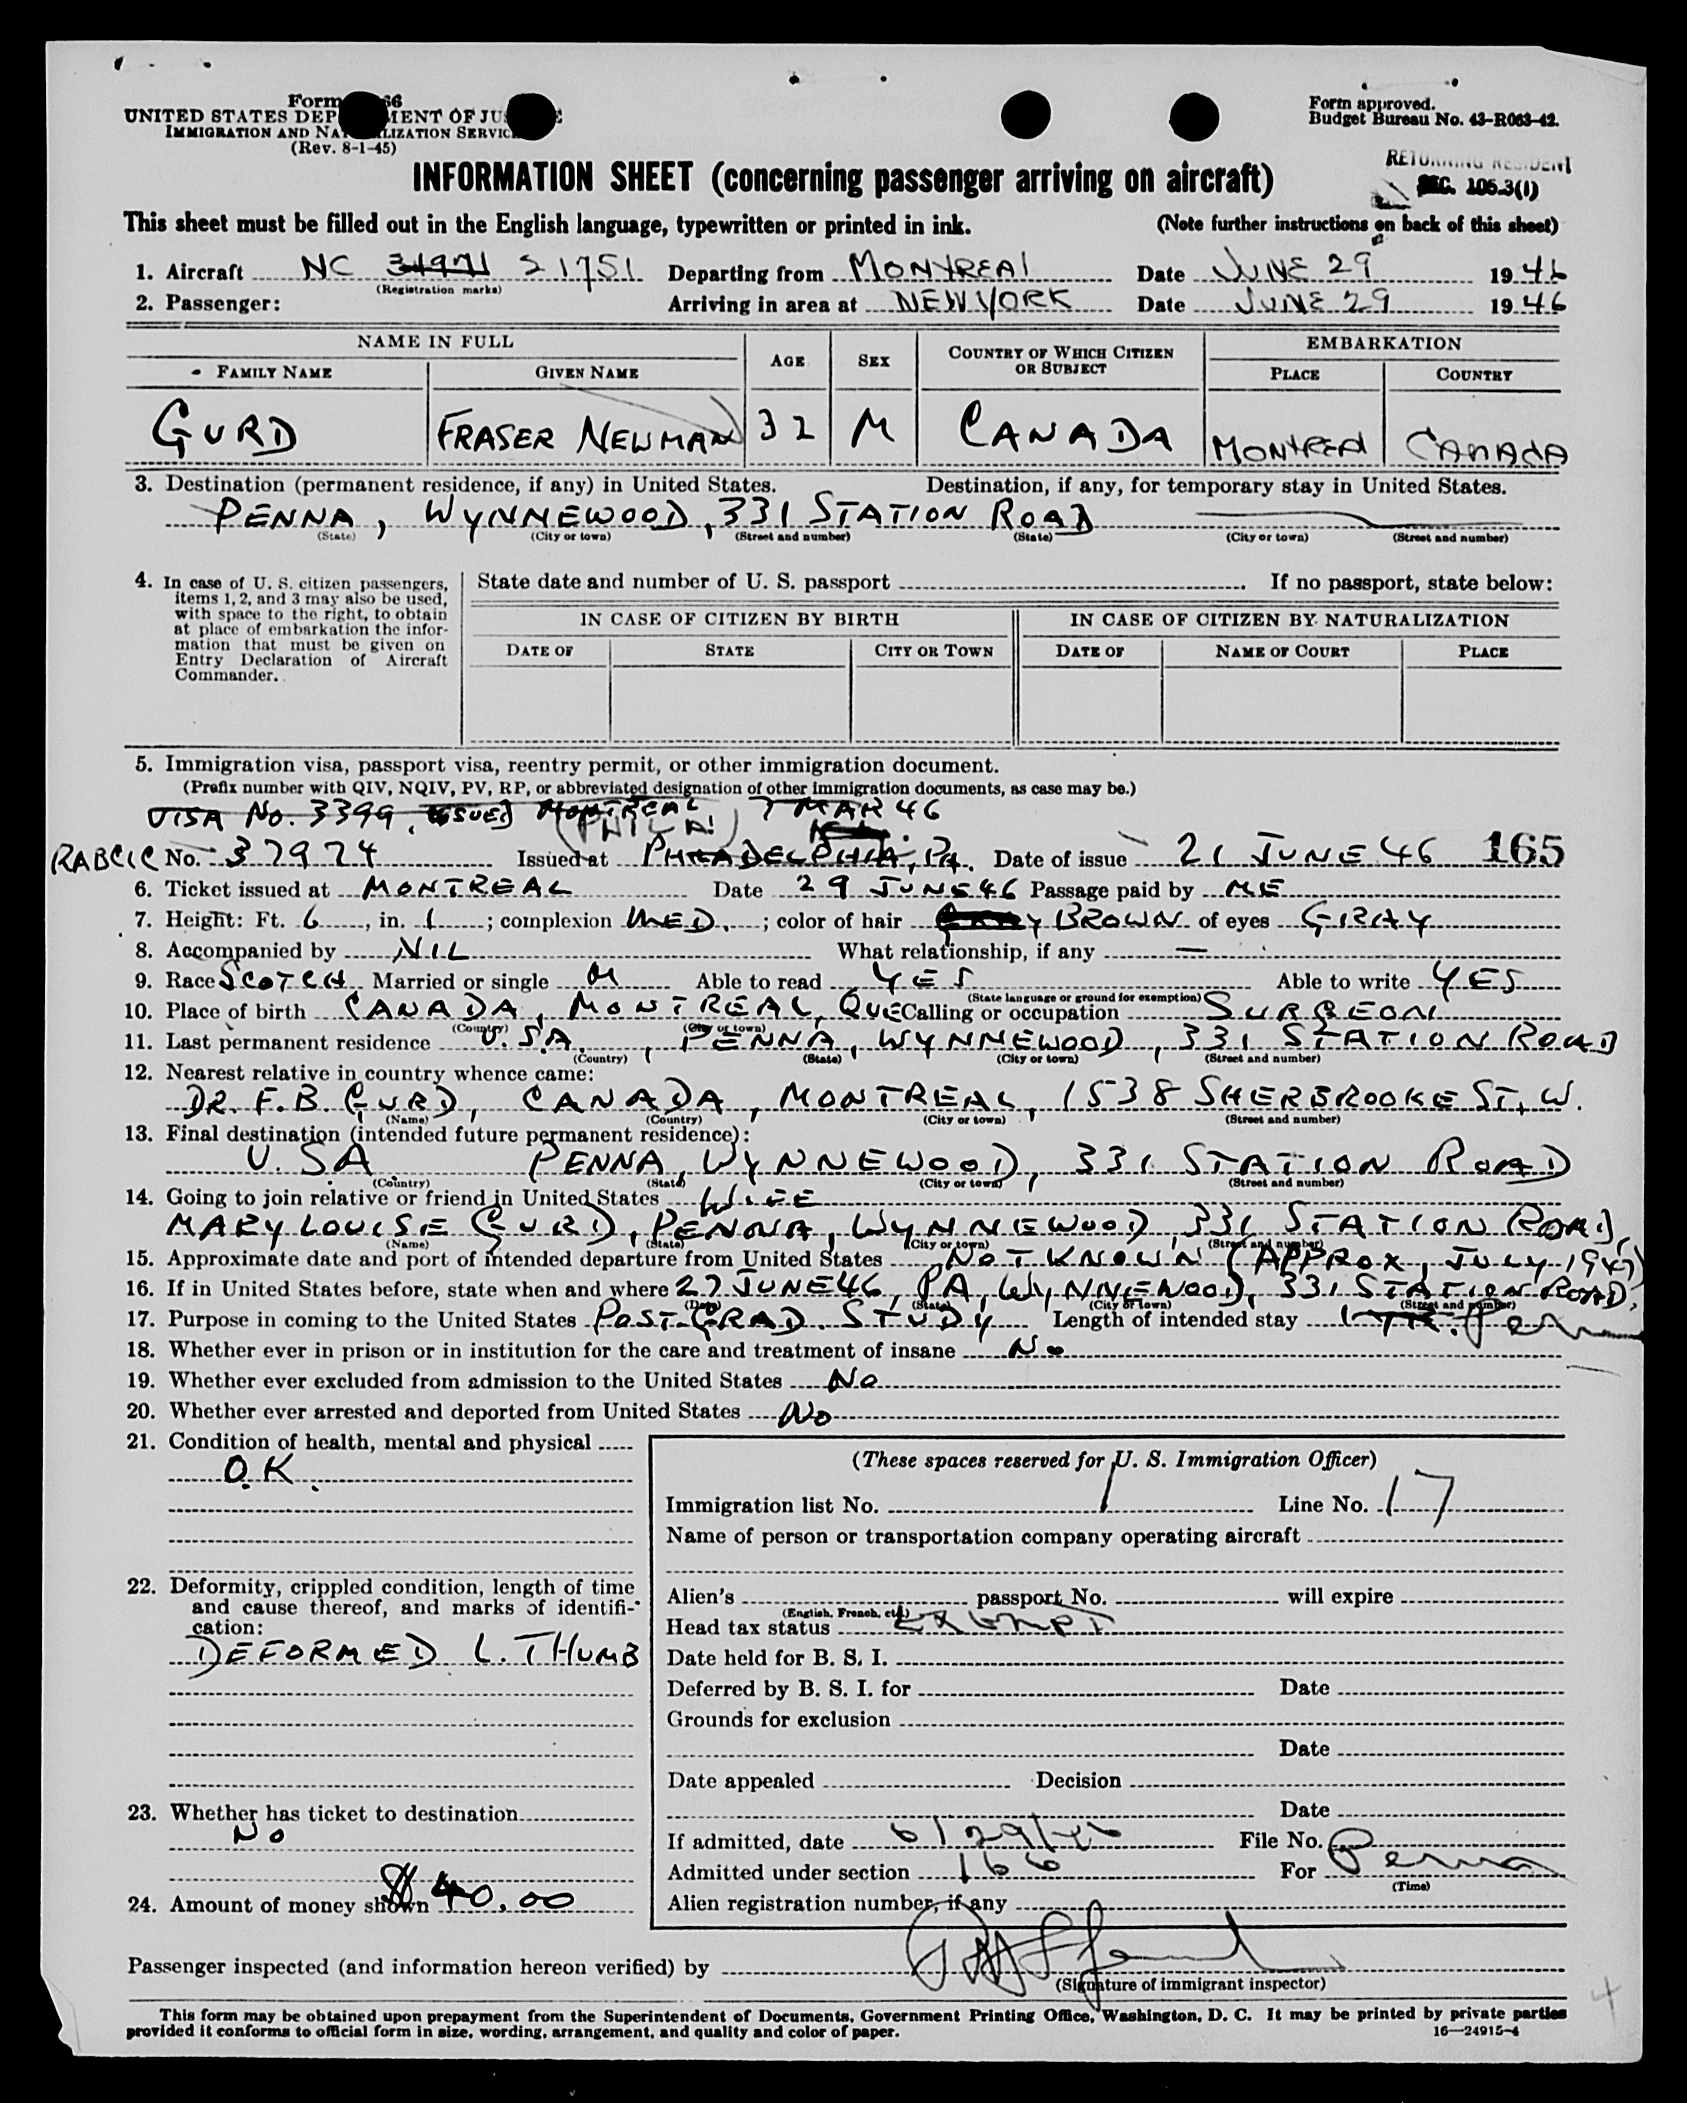 Form 66
UNITED STATES DEP MENT OF JUS E
IMMIGRATION AND NA LIZATION SERVIC
(Rev. 8-1-45)
Form approved.
Budget Bureau No. 43-R063-42.
RETURNING RESIDENT
SEC. 105.3(1)
INFORMATION SHEET (concerning passenger arriving on aircraft)
This sheet must be filled out in the English language, typewritten or printed in ink. (Note further instructions on back of this sheet)
1. Aircraft NC 31971 21751 Departing from MONTREAL Date JUNE 29 1946
(Registration marks)
2. Passenger: Arriving in area at NEW YORK Date JUNE 29 1946
NAME IN FULL AGE SEX COUNTRY OF WHICH CITIZEN OR SUBJECT EMBARKATION
FAMILY NAME GIVEN NAME PLACE COUNTRY
GURD FRASER NEWMAN 32 M CANADA MONTREAL CANADA
3. Destination (permanent residence, if any) in United States. Destination, if any, for temporary stay in United States.
PENNA, WYNNEWOOD, 331 STATION ROAD
(State) (City or town) (Street and number) (State) (City or town) (Street and number)
4. In case of U. S. citizen passengers, items 1, 2, and 3 may also be used, with space to the right, to obtain at place of embarkation the information that must be given on Entry Declaration of Aircraft Commander.
State date and number of U. S. passport If no passport, state below:
IN CASE OF CITIZEN BY BIRTH IN CASE OF CITIZEN BY NATURALIZATION
DATE OF STATE CITY OR TOWN DATE OF NAME OF COURT PLACE
5. Immigration visa, passport visa, reentry permit, or other immigration document.
(Prefix number with QIV, NQIV, PV, RP, or abbreviated designation of other immigration documents, as case may be.)
VISA No. 3399, ISSUED MONTREAL 7 MAR 46
(PHILA.)
RABCIC No. 37974 Issued at PHILADELPHIA, PA. Date of issue 21 JUNE 46 165
6. Ticket issued at MONTREAL Date 29 JUNE 46 Passage paid by ME
7. Height: Ft. 6, in. 1; complexion MED.; color of hair BROWN of eyes GRAY
8. Accompanied by NIL What relationship, if any —
9. Race SCOTCH Married or single M Able to read YES Able to write YES
(State language or ground for exemption)
10. Place of birth CANADA, MONTREAL, QUE Calling or occupation SURGEON
(Country) (City or town)
11. Last permanent residence U.S.A., PENNA, WYNNEWOOD, 331 STATION ROAD
(Country) (State) (City or town) (Street and number)
12. Nearest relative in country whence came:
DR. F.B. GURD, CANADA, MONTREAL, 1538 SHERBROOKE ST. W.
(Name) (Country) (City or town) (Street and number)
13. Final destination (intended future permanent residence):
U.SA PENNA, WYNNEWOOD, 331 STATION ROAD
(Country) (State) (City or town) (Street and number)
14. Going to join relative or friend in United States WIFE
MARY LOUISE GURD, PENNA, WYNNEWOOD, 331 STATION ROAD,
(Name) (State) (City or town) (Street and number)
15. Approximate date and port of intended departure from United States NOT KNOWN (APPROX, JULY 1947)
16. If in United States before, state when and where 27 JUNE 46, PA, WYNNEWOOD, 331 STATION ROAD,
(Date) (State) (City or town) (Street and number)
17. Purpose in coming to the United States POST-GRAD. STUDY Length of intended stay 1 YR. Perm
18. Whether ever in prison or in institution for the care and treatment of insane No
19. Whether ever excluded from admission to the United States No
20. Whether ever arrested and deported from United States No
21. Condition of health, mental and physical
O.K.
22. Deformity, crippled condition, length of time and cause thereof, and marks of identification:
DEFORMED L. THUMB
23. Whether has ticket to destination
No
24. Amount of money shown $40.00
(These spaces reserved for U. S. Immigration Officer)
Immigration list No. 1 Line No. 17
Name of person or transportation company operating aircraft
Alien's passport No. will expire
(English, French, etc.)
Head tax status Exempt
Date held for B. S. I.
Deferred by B. S. I. for Date
Grounds for exclusion
Date
Date appealed Decision
Date
If admitted, date 6/29/46 File No.
Admitted under section 166 For Perm
(Time)
Alien registration number, if any
Passenger inspected (and information hereon verified) by
(Signature of immigrant inspector)
This form may be obtained upon prepayment from the Superintendent of Documents, Government Printing Office, Washington, D. C. It may be printed by private parties
provided it conforms to official form in size, wording, arrangement, and quality and color of paper. 16—24915-4
4